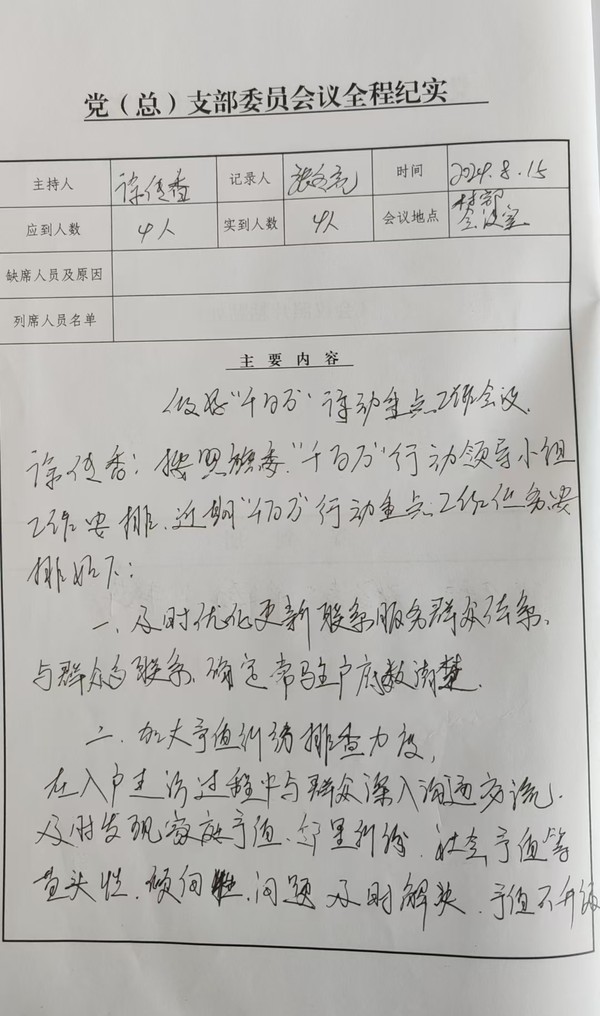 党（总）支部委员会议全程纪实
主持人 徐传香 记录人 时间 2024.8.15
应到人数 4人 实到人数 4人 会议地点 村部会议室
缺席人员及原因
列席人员名单
主要内容
做好“千百万”行动重点工作会议.
徐传香：按照旗委“千百万”行动领导小组
工作安排.近期“千百万”行动重点工作任务安
排如下：
一、及时优化更新联系服务群众体系、
与群众多联系、确定常驻户底数清楚.
二、加大矛盾纠纷排查力度,
在入户走访过程中与群众深入沟通交流.
及时发现家庭矛盾、邻里纠纷.社会矛盾等
苗头性.倾向性.问题及时解决.矛盾不升级